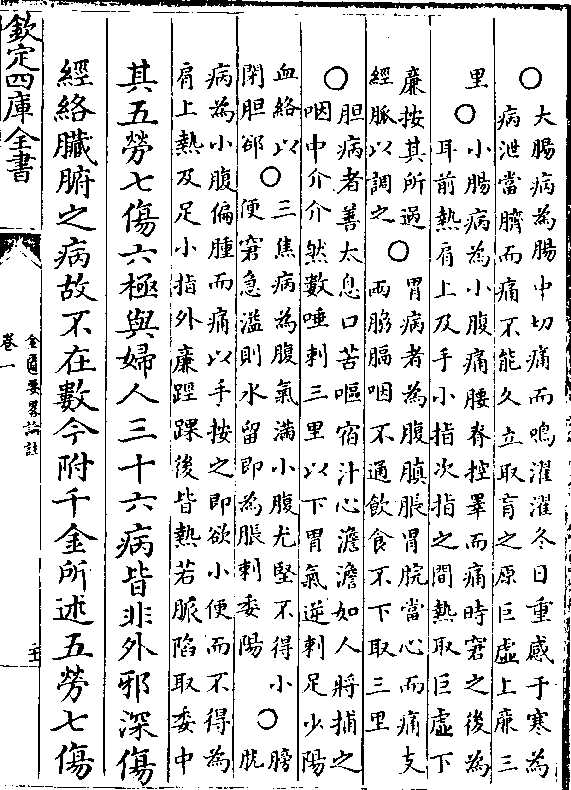 ○大腸病為腸中切痛而鳴濯濯冬日重感于寒為
病泄當臍而痛不能久立取肓之原巨虛上廉三
里○小腸病為小腹痛腰脊控睪而痛時窘之後為
耳前熱肩上及手小指次指之間熱取巨虛下
廉按其所過
經脈以調之
○胃病者為腹䐜脹胃脘當心而痛支
兩脇膈咽不通飲食不下取三里
○胆病者善太息口苦嘔宿汁心澹澹如人將捕之
咽中介介然數唾刺三里以下胃氣逆刺足少陽
血絡以
閉胆郤
○三焦病為腹氣滿小腹尤堅不得小
便窘急溢則水留即為脹刺委陽
○膀
胱
病為小腹偏腫而痛以手按之即欲小便而不得為
肩上熱及足小指外廉脛踝後皆熱若脈陷取委中
其五勞七傷六極與婦人三十六病皆非外邪深傷
經絡臟腑之病故不在數今附千金所述五勞七傷
欽定四庫全書
金匱要畧論註
卷一